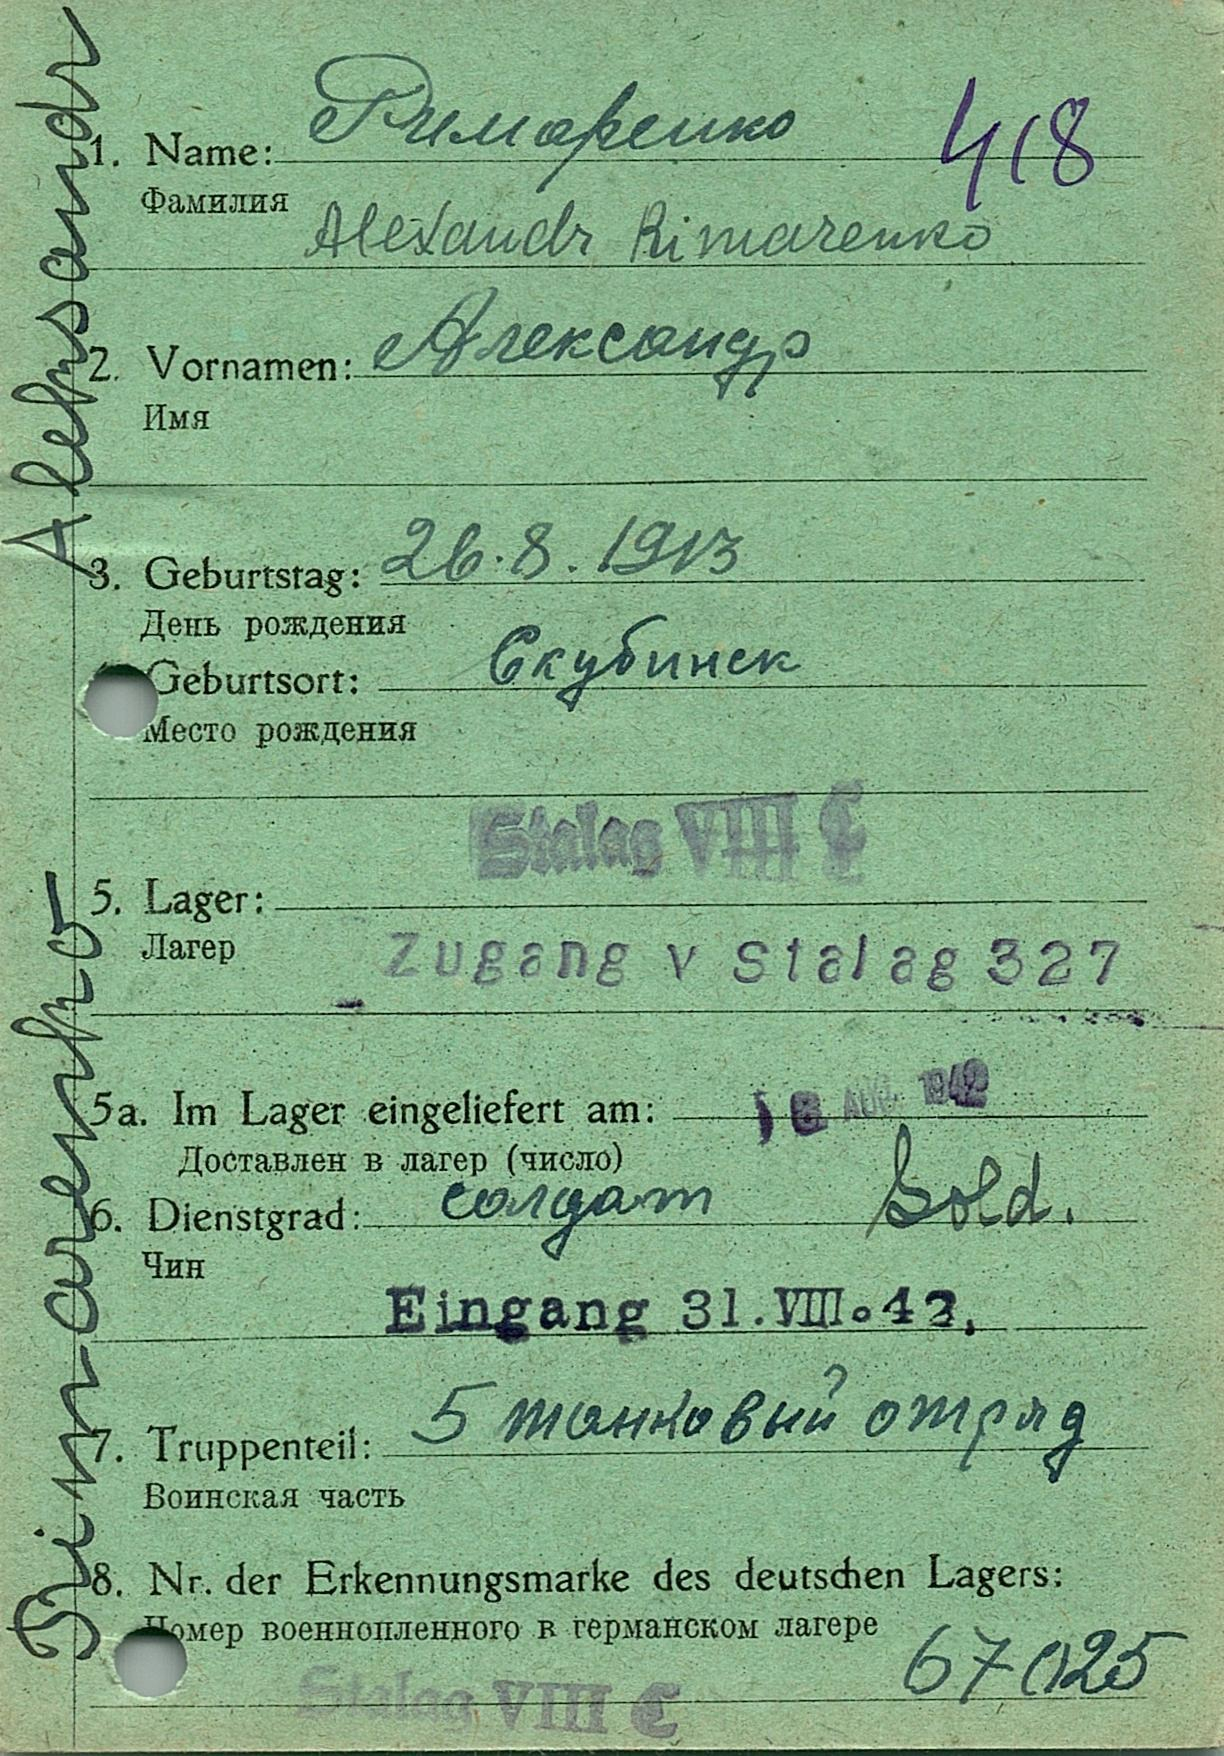 Римаренко
418
1. Name:
Фамилия
Alexandr Rimarenko
2. Vornamen: Александр
Имя
3. Geburtstag: 26.8.1913
День рождения
Geburtsort: Скубинск
Место рождения
Stalag VIII C
5. Lager:
Лагер
Zugang v Stalag 327
5a. Im Lager eingeliefert am: 18 AUG. 1942
Доставлен в лагер (число)
6. Dienstgrad: солдат Sold.
Чин
Eingang 31.VIII.42.
7. Truppenteil: 5 танковый отряд
Воинская часть
8. Nr. der Erkennungsmarke des deutschen Lagers:
Номер военнопленного в германском лагере
67025
Stalag VIII C
Rimarenko Aleksandr